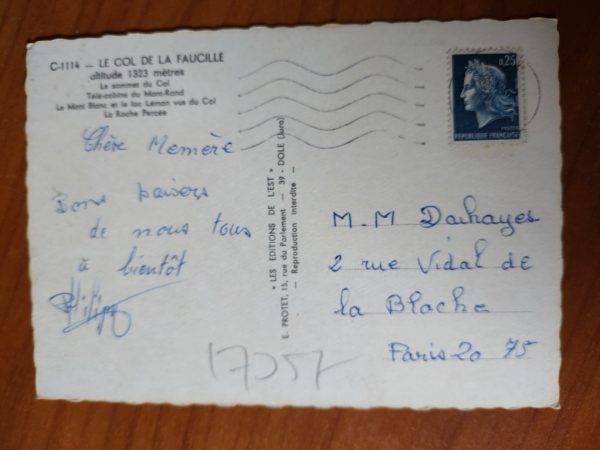 C-1114 — LE COL DE LA FAUCILLE
altitude 1323 mètres
Le sommet du Col
Télé-cabine du Mont-Rond
Le Mont Blanc et le lac Léman vus du Col
La Roche Percée
Chère Memère
Bons baisers
de nous tous
à bientôt
Philippe
17057
* LES EDITIONS DE L'EST *
E. PROTET, 15, rue du Parlement — 39 - DOLE (Jura)
— Reproduction Interdite —
0,25
POSTES
REPUBLIQUE FRANÇAISE
M.M Dachayes
2 rue Vidal de
la Blache
Paris 20 75